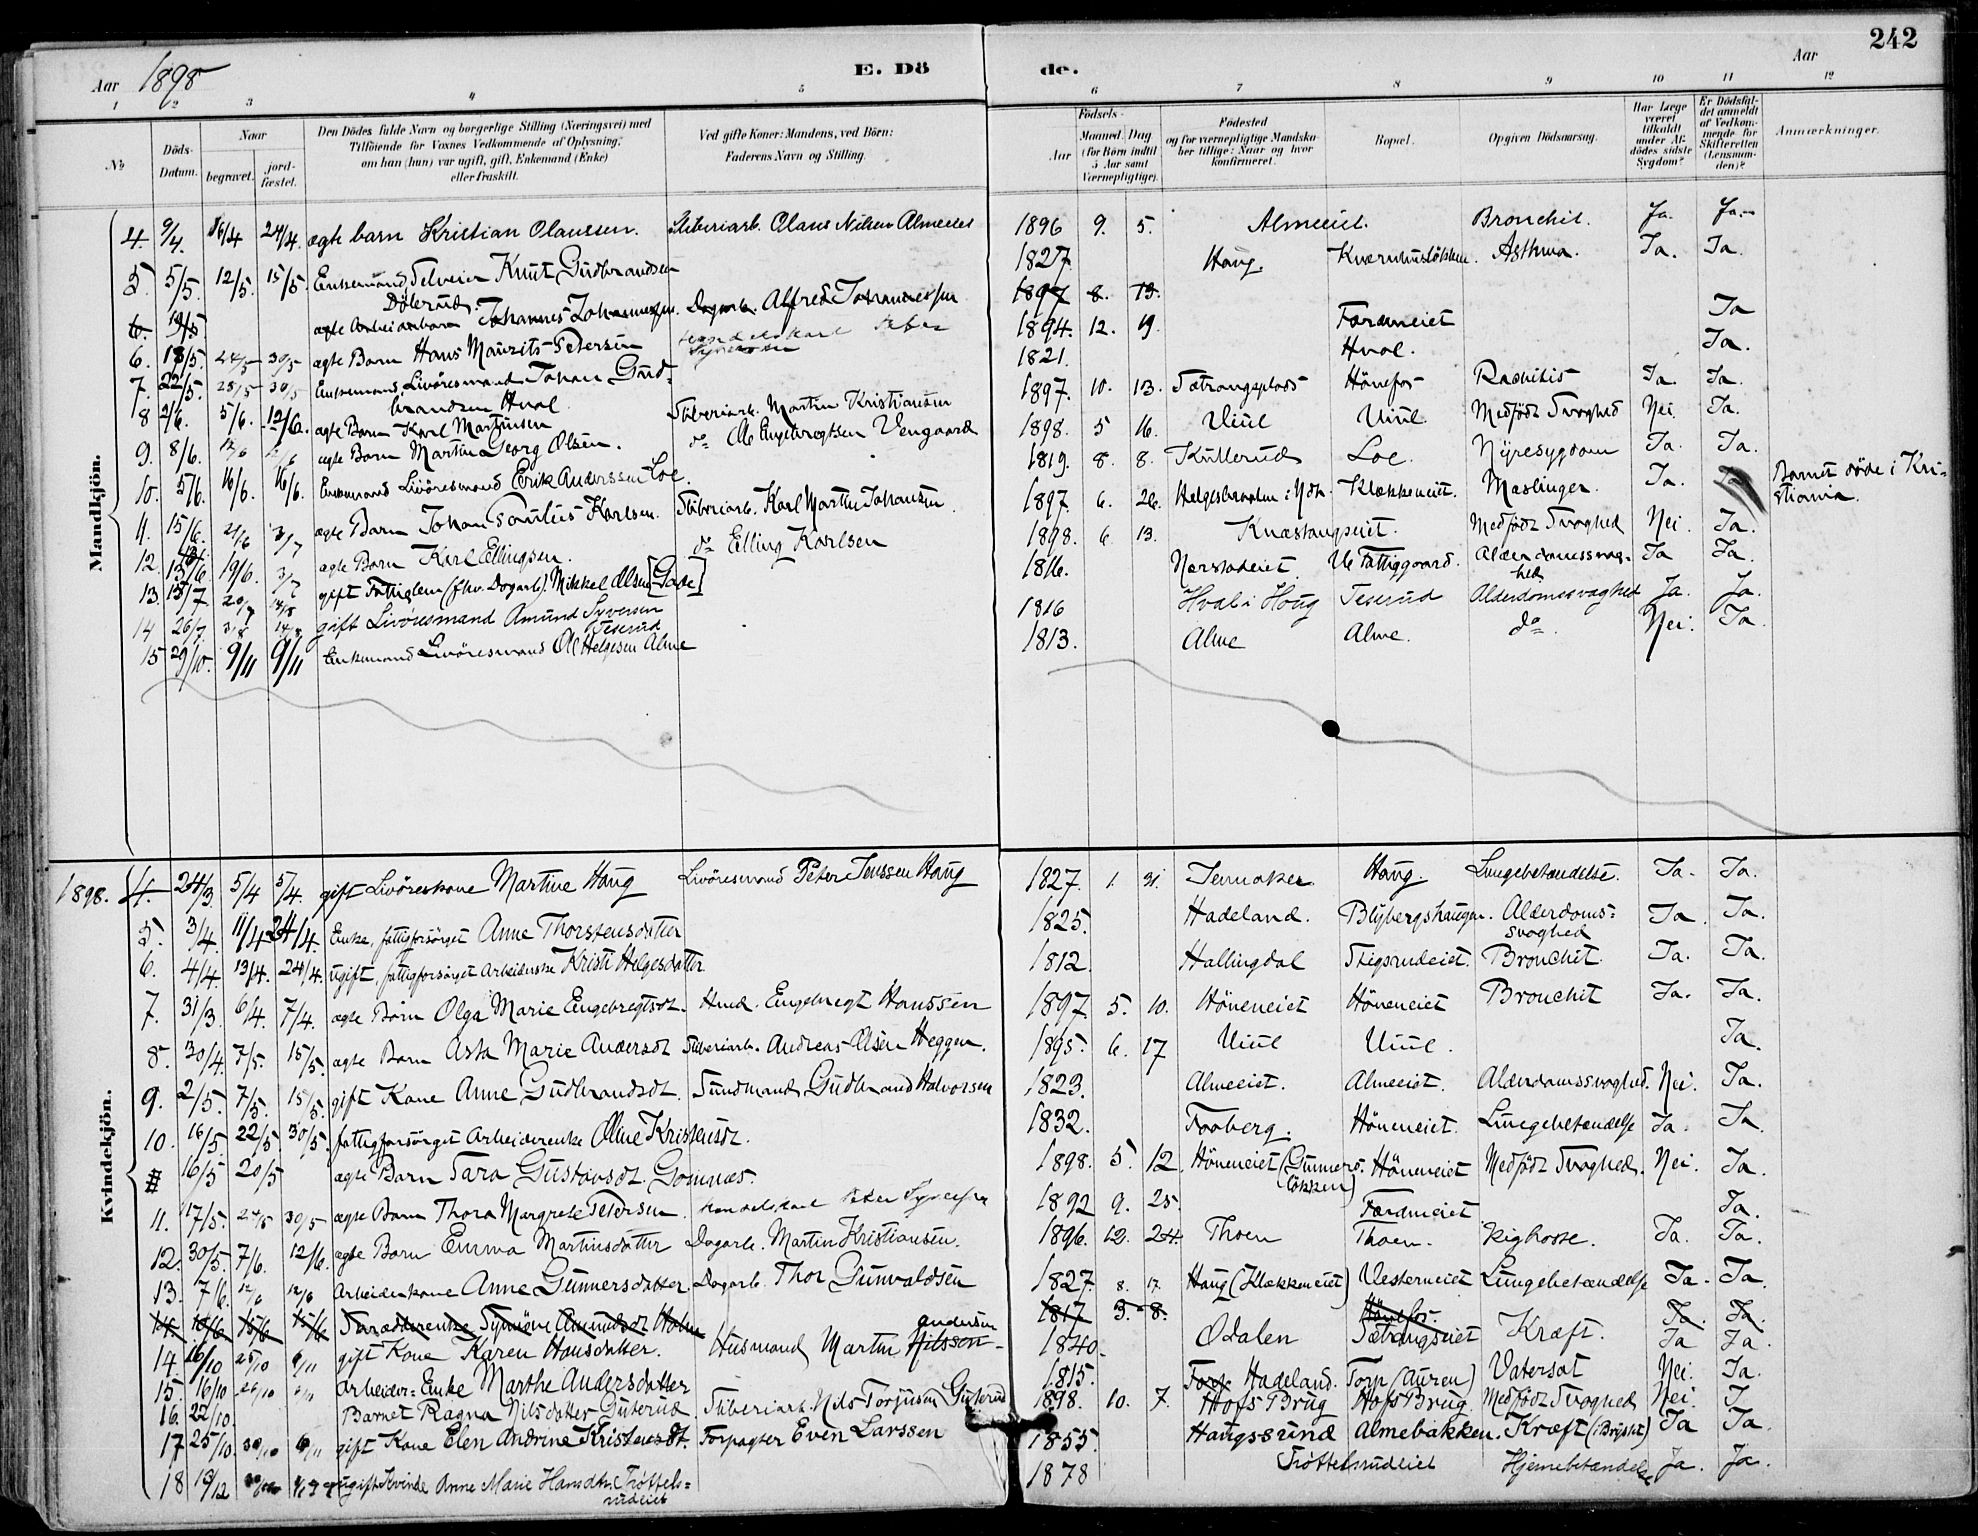 242
Aar 1898
E. Dö
de.
Aar
1 2 3 4 5 6 7 8 9 10 11 12
No
Döds-Datum.
Naar
begravet.
jord-fæstet.
Den Dödes fulde Navn og borgerlige Stilling (Næringsvei) med
Tilföiende for Voxnes Vedkommende af Oplysning,
om han (hun) var ugift, gift, Enkemand (Enke)
eller fraskilt.
Ved gifte Koner: Mandens, ved Börn:
Faderens Navn og Stilling.
Födsels-
Aar
Maaned. Dag
(for Börn indtil
5 Aar samt
Værnepligtige).
Födested
og for værnepligtige Mandska-
ber tillige: Naar og hvor
konfirmeret.
Bopæl.
Opgiven Dödsaarsag.
Har Læge
været
tilkaldt
under Af-
dödes sidste
Sygdom?
Er Dödsfal-
det anmeldt
af Vedkom-
mende for
Skifteretten
(Lensman-
den)?
Anmærkninger.
Mandkjön.
4. 9/4. 16/4 24/4. ægte barn Kristian Olaussen. Sliberiarb. Olaus Nilsen Almeeiet 1896 9. 5. Almeeiet. Bronchit. Ja. Ja.
5. 5/5. 12/5. 15/5. Enkemand Selveier Knut Gudbrandsen 1827. Haug. Kværnhusløkken. Asthma. Ja. Ja.
Dölerud.
6. 19/5 ægte Johannes Johannessen. Dagarb. Alfred Johannessen 1897 8. 13.
6. 18/5. 24/5 30/5 ægte Barn Hans Maurits Petersen Handelskarl Peter 1894. 12. 19. Færdneiet Ja
Syversen
7. 22/5. 28/5 30/5 Enkemand Livöresmand Johan Gud- 1821. Hval. Ja.
brandsen Hval
8 2/6. 5/6. 12/6. ægte Barn Karl Martinsen Sliberiarb. Martin Kristiansen 1897. 10. 13. Sætrangsplads Hönefos Rachitis Ja. Ja.
9. 8/6. 12/6 12/6 ægte Barn Martin Georg Olsen. do Ole Engebregtsen Vengaard 1898. 5 16. Viul Viul Medfödt Svaghed Nei. Ja.
10. 5/6. 16/6. 16/6. Enkemand Livöresmand Erik Anderssen Loe. 1819. 8. 8. Kullerud Loe. Nyresygdom Ja. Ja.
11. 15/6. 21/6 3/7 ægte Barn Johan Paulus Karlsen. Sliberiarb. Karl Martin Johansen. 1897. 6. 26. Klækkeneiet. Mæslinger. Ja. Ja Barnet döde i Kri-
stiania.
12. 13/6. 19/6. 3/7 ægte Barn Karl Ellingsen. do Elling Karlsen 1898. 6 13. Knæstangseiet. Medfödt Svaghed Nei. Ja.
13. 15/7 20/7 14/8 gift Fattiglem (fhv. Dagarb.) Mikkel Olsen [Gase] 1816. Nærstadeiet. Ve Fattiggaard. Alderdomssvag- Ja Ja.
hed
14 26/7. 3/8 14/8 gift Livöresmand Amund Syversen 1816 Hval i Houg Teserud Alderdomssvaghed Ja. Ja.
Teserud
15 29/10. 9/11 9/11 Enkemand Livöresmand Ole Helgesen Alme 1813. Alme Alme. do. Nei. Ja.
Kvindekjön.
1898. 4. 24/3 5/4 5/4. gift Livöreskone Martine Haug Livöresmand Peter Jenssen Haug 1827. 1. 31. Jevnaker Haug. Lungebetændelse. Ja. Ja.
5. 3/4. 11/4 24/4 Enke, fattigforsörget Anne Thorstensdatter 1825. Hadeland. Blybergshaugen. Alderdoms- Ja. Ja.
svaghed
6. 4/4. 13/4. 24/4. ugift, fattigforsörget Arbeiderske Kristi Helgesdatter 1812. Hallingdal Stigsrudeiet. Bronchit. Ja. Ja.
7. 31/3. 6/4. 7/4. ægte Barn Olga Marie Engebregtsdt. Husd. Engebregt Hanssen 1897 5. 10. Höneneiet Höneneiet Bronchit Ja. Ja.
8. 30/4. 7/5. 15/5. ægte Barn Asta Marie Andersdt Sliberiarb. Andreas Olsen Heggen. 1895. 6. 17 Viul Viul. Ja.
9. 2/5. 7/5. 15/5. gift Kone Anne Gudbrandsdt. Sundmand Gudbrand Halvorsen 1823. Almeeiet. Almeeiet. Alderdomssvaghed. Nei. Ja.
10. 16/5. 22/5. 30/5. fattigforsörget Arbeiderenke Oline Kristensdt. 1832. Fooberg. Höneneiet. Lungebetændelse Ja. Ja.
16/5 20/5 ægte Barn Sara Gustavsdt. Gomnæs. 1898. 5. 12. Höneneiet (Gunners- Höneneiet Medfödt Svaghed. Nei. Ja.
lökken)
11. 17/5. 24/5 30/5 ægte Barn Thora Margrete Petersen Handelskarl Peter Syversen 1892 9. 25. Færdneiet Ja.
12. 30/5. 7/6. 12/6. ægte Barn Emma Martinsdatter Dagarb. Martin Kristiansen. 1896. 12. 24. Thoen Thoen. Kighoste. Ja. Ja.
13. 7/6. 12/6 12/6 Arbeiderkone Anne Gunnersdatter. Dagarb. Thor Gunvaldsen 1827. 8. 17. Haug (Klækkeneiet) Vesterneiet Lungebetændelse Ja. Ja.
14. 10/6 15/6 15/6 Synnöve Amundsdt Holm 1817 3. 8. Hönefos. Ja. Ja.
14. 16/10 25/10 6/11 gift Kone Karen Hansdatter. Husmand Martin Nilsson Andersen 1840. Odalen Sætrangseiet Kræft. Ja Ja.
15. 16/10 26/10 6/11 Arbeider-Enke Marthe Andersdatter 1815. Torp Hadeland. Torp (Auren) Vatersot Nei. Ja.
16. 22/10. Barnet Ragna Nilsdatter Guterud. Sliberiarb. Nils Torjusen Guterud 1898. 10. 7. Hofs Brug Hofs Brug. Medfödt Svaghed Nei. J
17 25/10 30/10 6/11 gift Kone Elen Andrine Kristensdt. Forpagter Even Larssen 1855. Haugssund Almebakken. Kræft (i Brystet) Ja Ja.
18 19/12 ugift Kvinde Anne Marie Hansdtr. Tröttels- 1878 Tröttelsrudeiet Hjernebetændelse Ja. Ja.
rudeiet